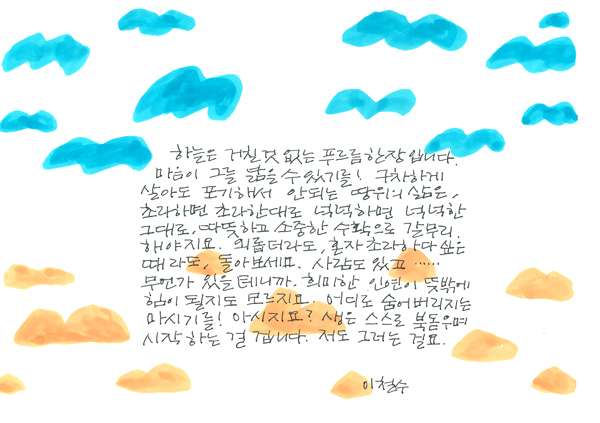 하늘은 거칠것 없는 푸르름 한장입니다.
마음이 그를 닮을 수 있기를! 구차하게
살아도 포기해서 안되는 땅위의 삶은,
초라하면 초라한대로 넉넉하면 넉넉한
그대로, 따뜻하고 소중한 수확으로 갈무리
해야지요. 외롭더라도, 혼자 초라하다 싶은
때라도, 돌아보세요. 사람도 있고 ……
무언가 있을테니까. 희미한 인연이 뜻밖에
힘이 될지도 모르지요. 어디로 숨어버리지는
마시기를! 아시지요? 생은 스스로 북돋우며
시작하는 걸 겁니다. 저도 그러는 걸요.
이철수